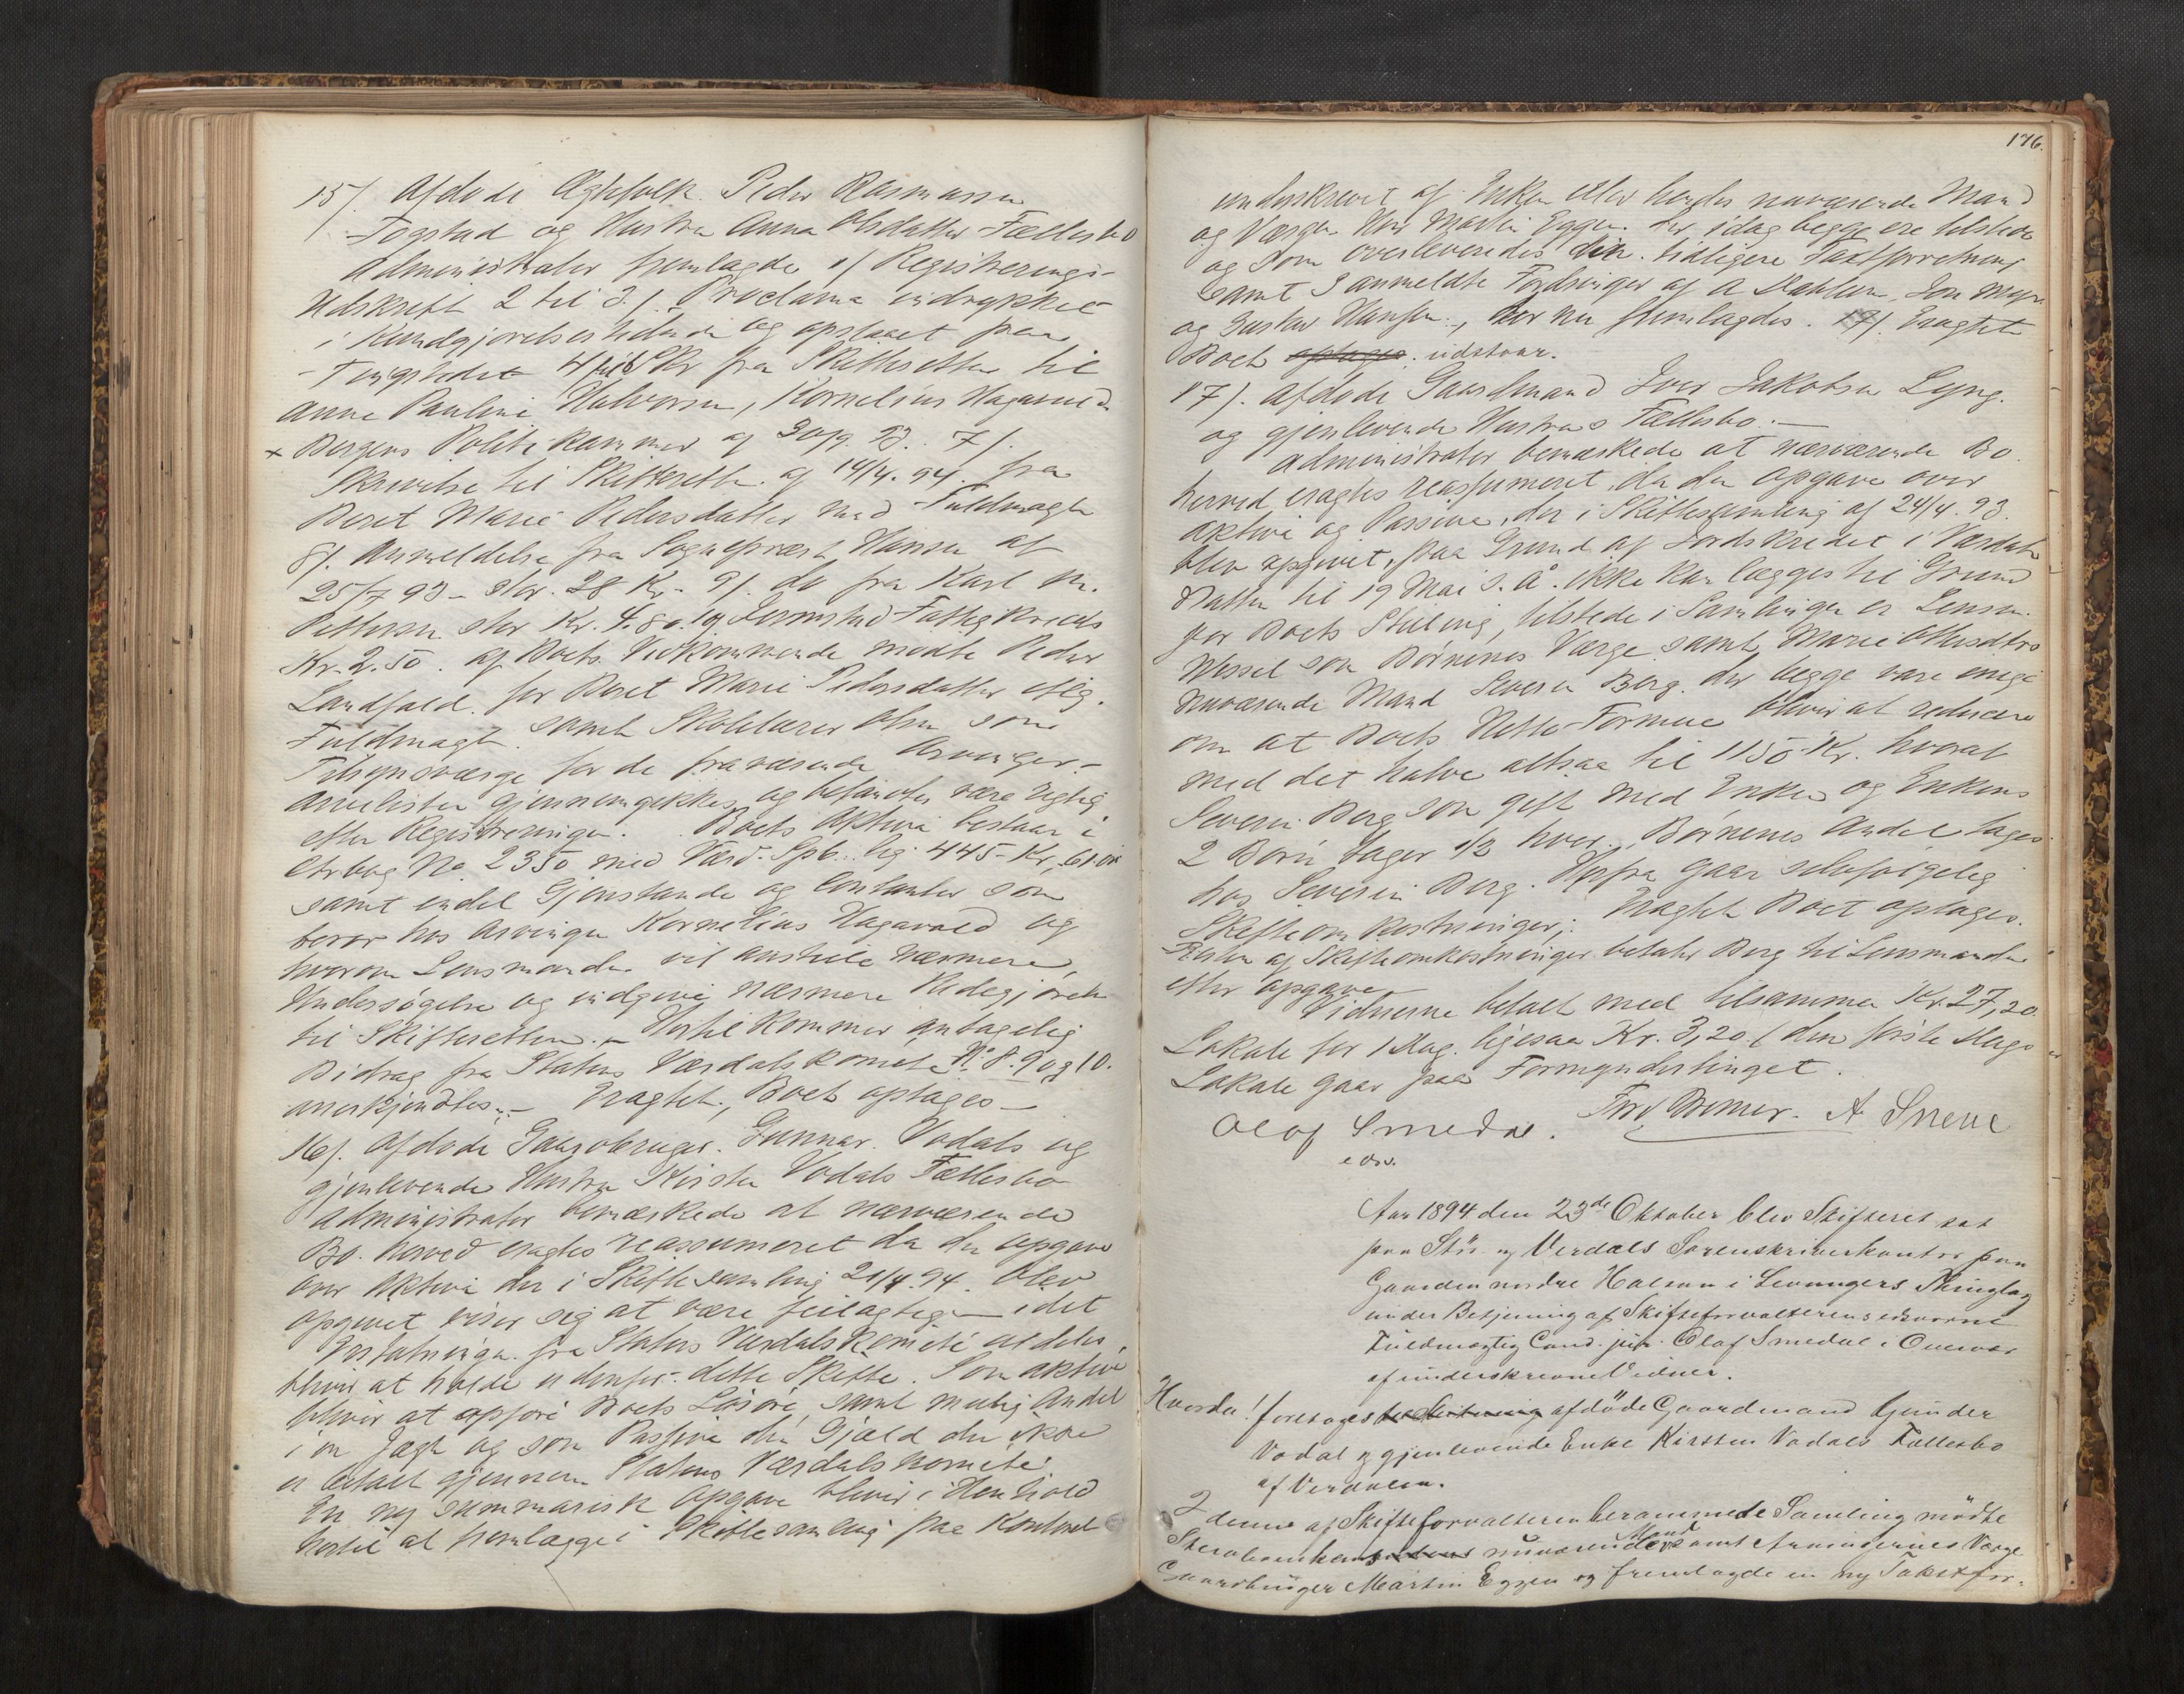 15/. Afdøde Ægtefolk Peder Rasmussen
Fogstad og Hustru Anna Olsdatter Fællesbo
Administrator fremlagde 1/ Registrerings-
Udskrift 2 til 3/. Proclama indrykket
i Kundgjørelsestidende og opslaaet paa
Tingstedet 4 til 6 Skr fra Skifteretten til
Anne Pauline Halvorsen, Kornelius Hagavold
x Bergens Politikammer af 30/9 93. 7/.
Skrivelse til Skifteretten af 14/4. 94. fra
Beret Marie Pedersdatter med Fuldmagt
8/. Anmeldelse fra Sogneprest Hansen af
25/7 93 - stor. 28 Kr. 9/. do fra Karl M.
Pettersen stor Kr. 4.80. 10/ Fattigkreds
Kr. 2.50. af Boets Vedkommende mødte Peder
Landfald for Beret Marie Pedersdatter iflg.
Fuldmagt samt Skolelærer Olsen som
Tilsynsværge for de fraværende Arvinger.-
Arvelisten gjennemgikkes og befandtes være rigtig
efter Registreringen. Boets Aktiva bestaar i
Ctrbog No 2350 med Værd. Spb. lig 445- Kr. 61 ør
samt endel Gjenstande og Contanter som
beror hos Arvingen Kornelius Hagavold og
hvorom Lensmanden vil anstille nærmere
Undersøgelse og indgive nærmere Redegjørelse
til Skifteretten. - Hertil kommer antagelig
Bidrag fra Statens Værdalskomite No 8. 9 og 10.
anerkjendtes. - Eragtet, Boet optages -
16/. Afdøde Gaardbruger Gunnar Vodals og
gjenlevende Hustru Kirsten Vodals Fællesbo
Administrator bemærkede at nærværende
Bo. herved eragtes reassumeret da den Opgave
over Aktiva der i Skiftesamling 21/4. 94. blev
opgivet viser sig at være feilagtig idet
Erstatningen fra Statens Værdalskomite
bliver at holde udenfor dette Skifte. Som aktiva
bliver at opføre Boets Løsøre samt mulig Andel
i en Jagt og som Passiva den Gjæld der ikke
er betalt gjennem Statens Værdalskomite
En ny summarisk Opgave bliver i Henhold
hertil at fremlægge i Skiftesamling paa Kontoret
176.
underskrevet af Enken eller hendes nuværende Mand
og Værgen Hr Martin Eggen. der idag begge ere tilstede
og som overleveredes den tidligere Taxtforretning
samt 3 anmeldte Fordringer af A
og Gustav Hansen, der nu fremlagdes. 17/. Eragtet
Boet optages. udstaar.
17/. Afdøde Gaardmand Iver Jakobsen Lyng.
og gjenlevende Hustrus Fællesbo. -
Administrator bemærkede at nærværende Bo
herved eragtes reassumeret, da den Opgave over
Aktiva og Passiva, der i Skiftesamling af 24/4. 93.
blev opgivet, paa Grund af Jordskredet i Værdalen
Natten til 19 Mai s. Å. ikke kan lægges til Grund
for Boets Stilling, tilstede i Samlingen er Lensm.
Wessel som Børnenes Værge samt Marie Ottersdtrs
nuværende Mand Severin Berg. der begge vare enige
om at Boets Netto-Formue bliver at reducere
med det halve altsaa til 1150 Kr. hvoraf
Severin Berg som gift med Enken og Enkens
2 Børn tager 1/3 hver. Børnenes Andel tages
hos Severin Berg. Herfra gaar selvfølgelig
Skifteomkostninger. Eragtet Boet optages.
Resten af Skifteomkostninger betaler Berg til Lensmanden
efter Opgave
Vidnerne betalt med tilsammen Kr. 27,20.
Lokale for 1 Dag ligesaa Kr. 3,20. ( den første Dags
Lokale gaar paa Formyndertinget.
Olaf Smedal. A
edsv.
Aar 1894 den 23de Oktober blev Skifteret sat
paa Stør. og Verdals Sorenskriverkontor paa
Gaarden nordre Halsan i Levangers Thinglag
under Betjening af Skifteforvalterens edsvorne
Fuldmægtig Cand. jur. Olaf Smedal i Overvær
af underskrevne Vidner.
Hvorda! foretoges afdøde Gaardmand Gunder
Vodal og gjenlevende Enke Kirsten Vodals Fællesbo
af Verdalen.
I denne af Skifteforvalteren berammede Samling mødte
nuværende Mand samt Arvingernes Værge
Gaardbruger Martin Eggen og fremlagde en ny Takstfor-